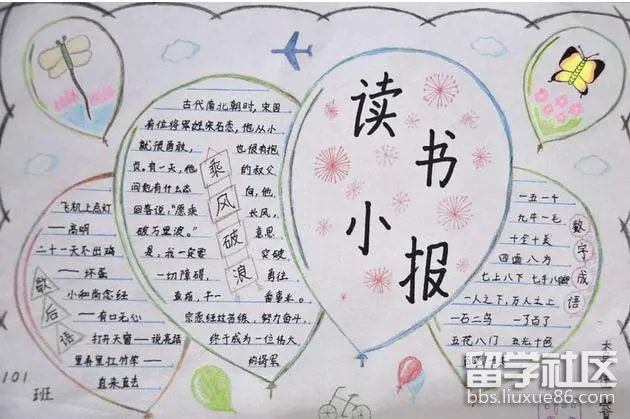 读书小报
飞机上点灯
——高明
二十一天不出鸡
——坏蛋
小和尚念经
——有口无心
打开天窗——说亮话
里弄里扛竹竿——
直来直去
歇后语
101
班
古代南北朝时,宋国
有位将军姓宗名悫,他从小
就很勇敢, 也很有抱
负,有一天,他 的叔父
问他有什么志 向,他
回答说:"愿乘 长风,
破万里浪。" 意思
是,我一定要 突破
一切障碍, 勇往
直前,干一 番事业。
宗悫经过苦练,努力奋斗,
终于成为一位伟大
的将军
乘风破浪
一五一十
九牛一毛
十全十美
四面八方
七上八下 七手八脚
一人之下,万人之上
一石二鸟 一了百了
五花八门 五光十色
数字成语
留学社区
bbs.liuxue86.com